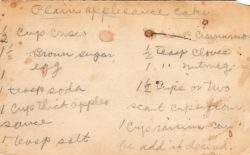 Plain applesauce cake
1/2 Cup Crisco
1 " Brown sugar
1 egg
1 teasp soda
1 Cup thick apple
sauce
1 teasp salt
" Cinnamon
1/2 teasp Cloves
1/2 " nutmeg
1 1/2 Cups or two
scant cups flour
1 Cup raisins can
be add if desired.